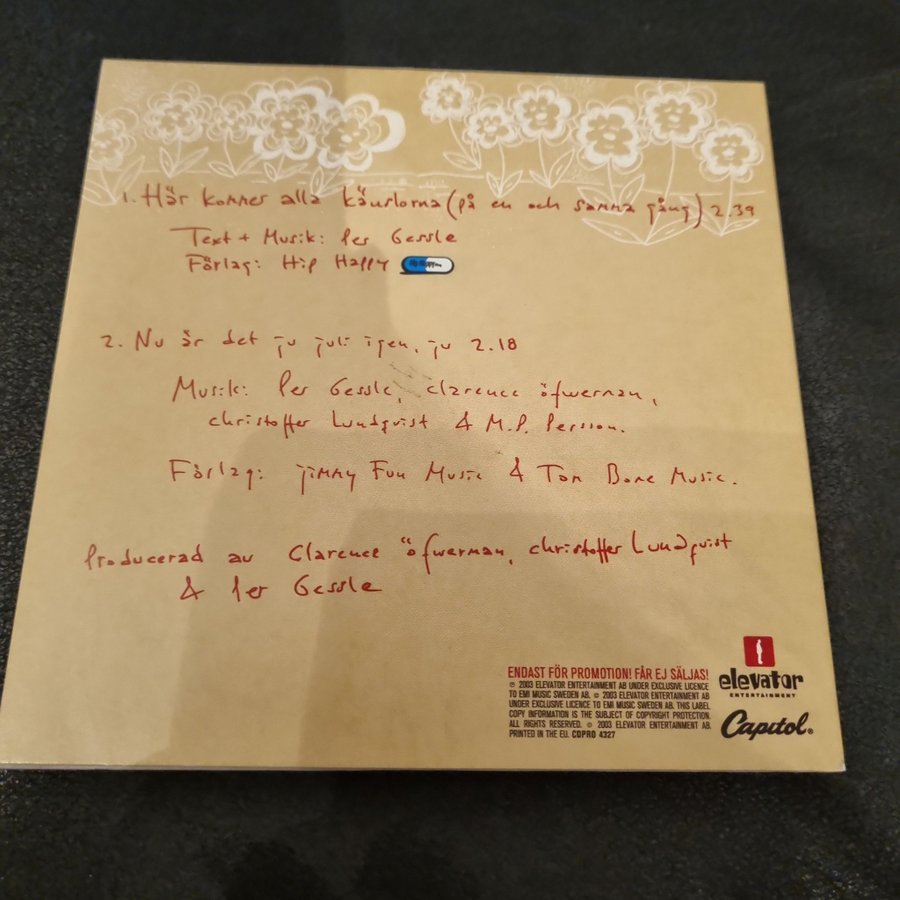 1. Här kommer alla känslorna (på en och samma gång) 2.39
Text + Musik: Per Gessle
Förlag: Hip Happy
2. Nu är det ju juli igen, ju 2.18
Musik: Per Gessle, Clarence öfwerman,
christoffer Lundqvist & M.P. Persson.
Förlag: jimmy Fun Music & Tom Bone Music.
Producerad av Clarence öfwerman, christoffer Lundqvist
& Per Gessle
ENDAST FÖR PROMOTION! FÅR EJ SÄLJAS!
℗ 2003 ELEVATOR ENTERTAINMENT AB UNDER EXCLUSIVE LICENCE
TO EMI MUSIC SWEDEN AB. © 2003 ELEVATOR ENTERTAINMENT AB
UNDER EXCLUSIVE LICENCE TO EMI MUSIC SWEDEN AB. THIS LABEL
COPY INFORMATION IS THE SUBJECT OF COPYRIGHT PROTECTION.
ALL RIGHTS RESERVED. © 2003 ELEVATOR ENTERTAINMENT AB.
PRINTED IN THE EU. CDPRO 4327
elevator
ENTERTAINMENT
Capitol®